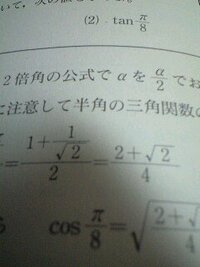 いて,次の値
(2) tan π/8
2倍角の公式で α を α/2 でお
に注意して半角の三角関数の
= (1+1/√2)/2 = (2+√2)/4
cos π/8 = √(2+√ /4